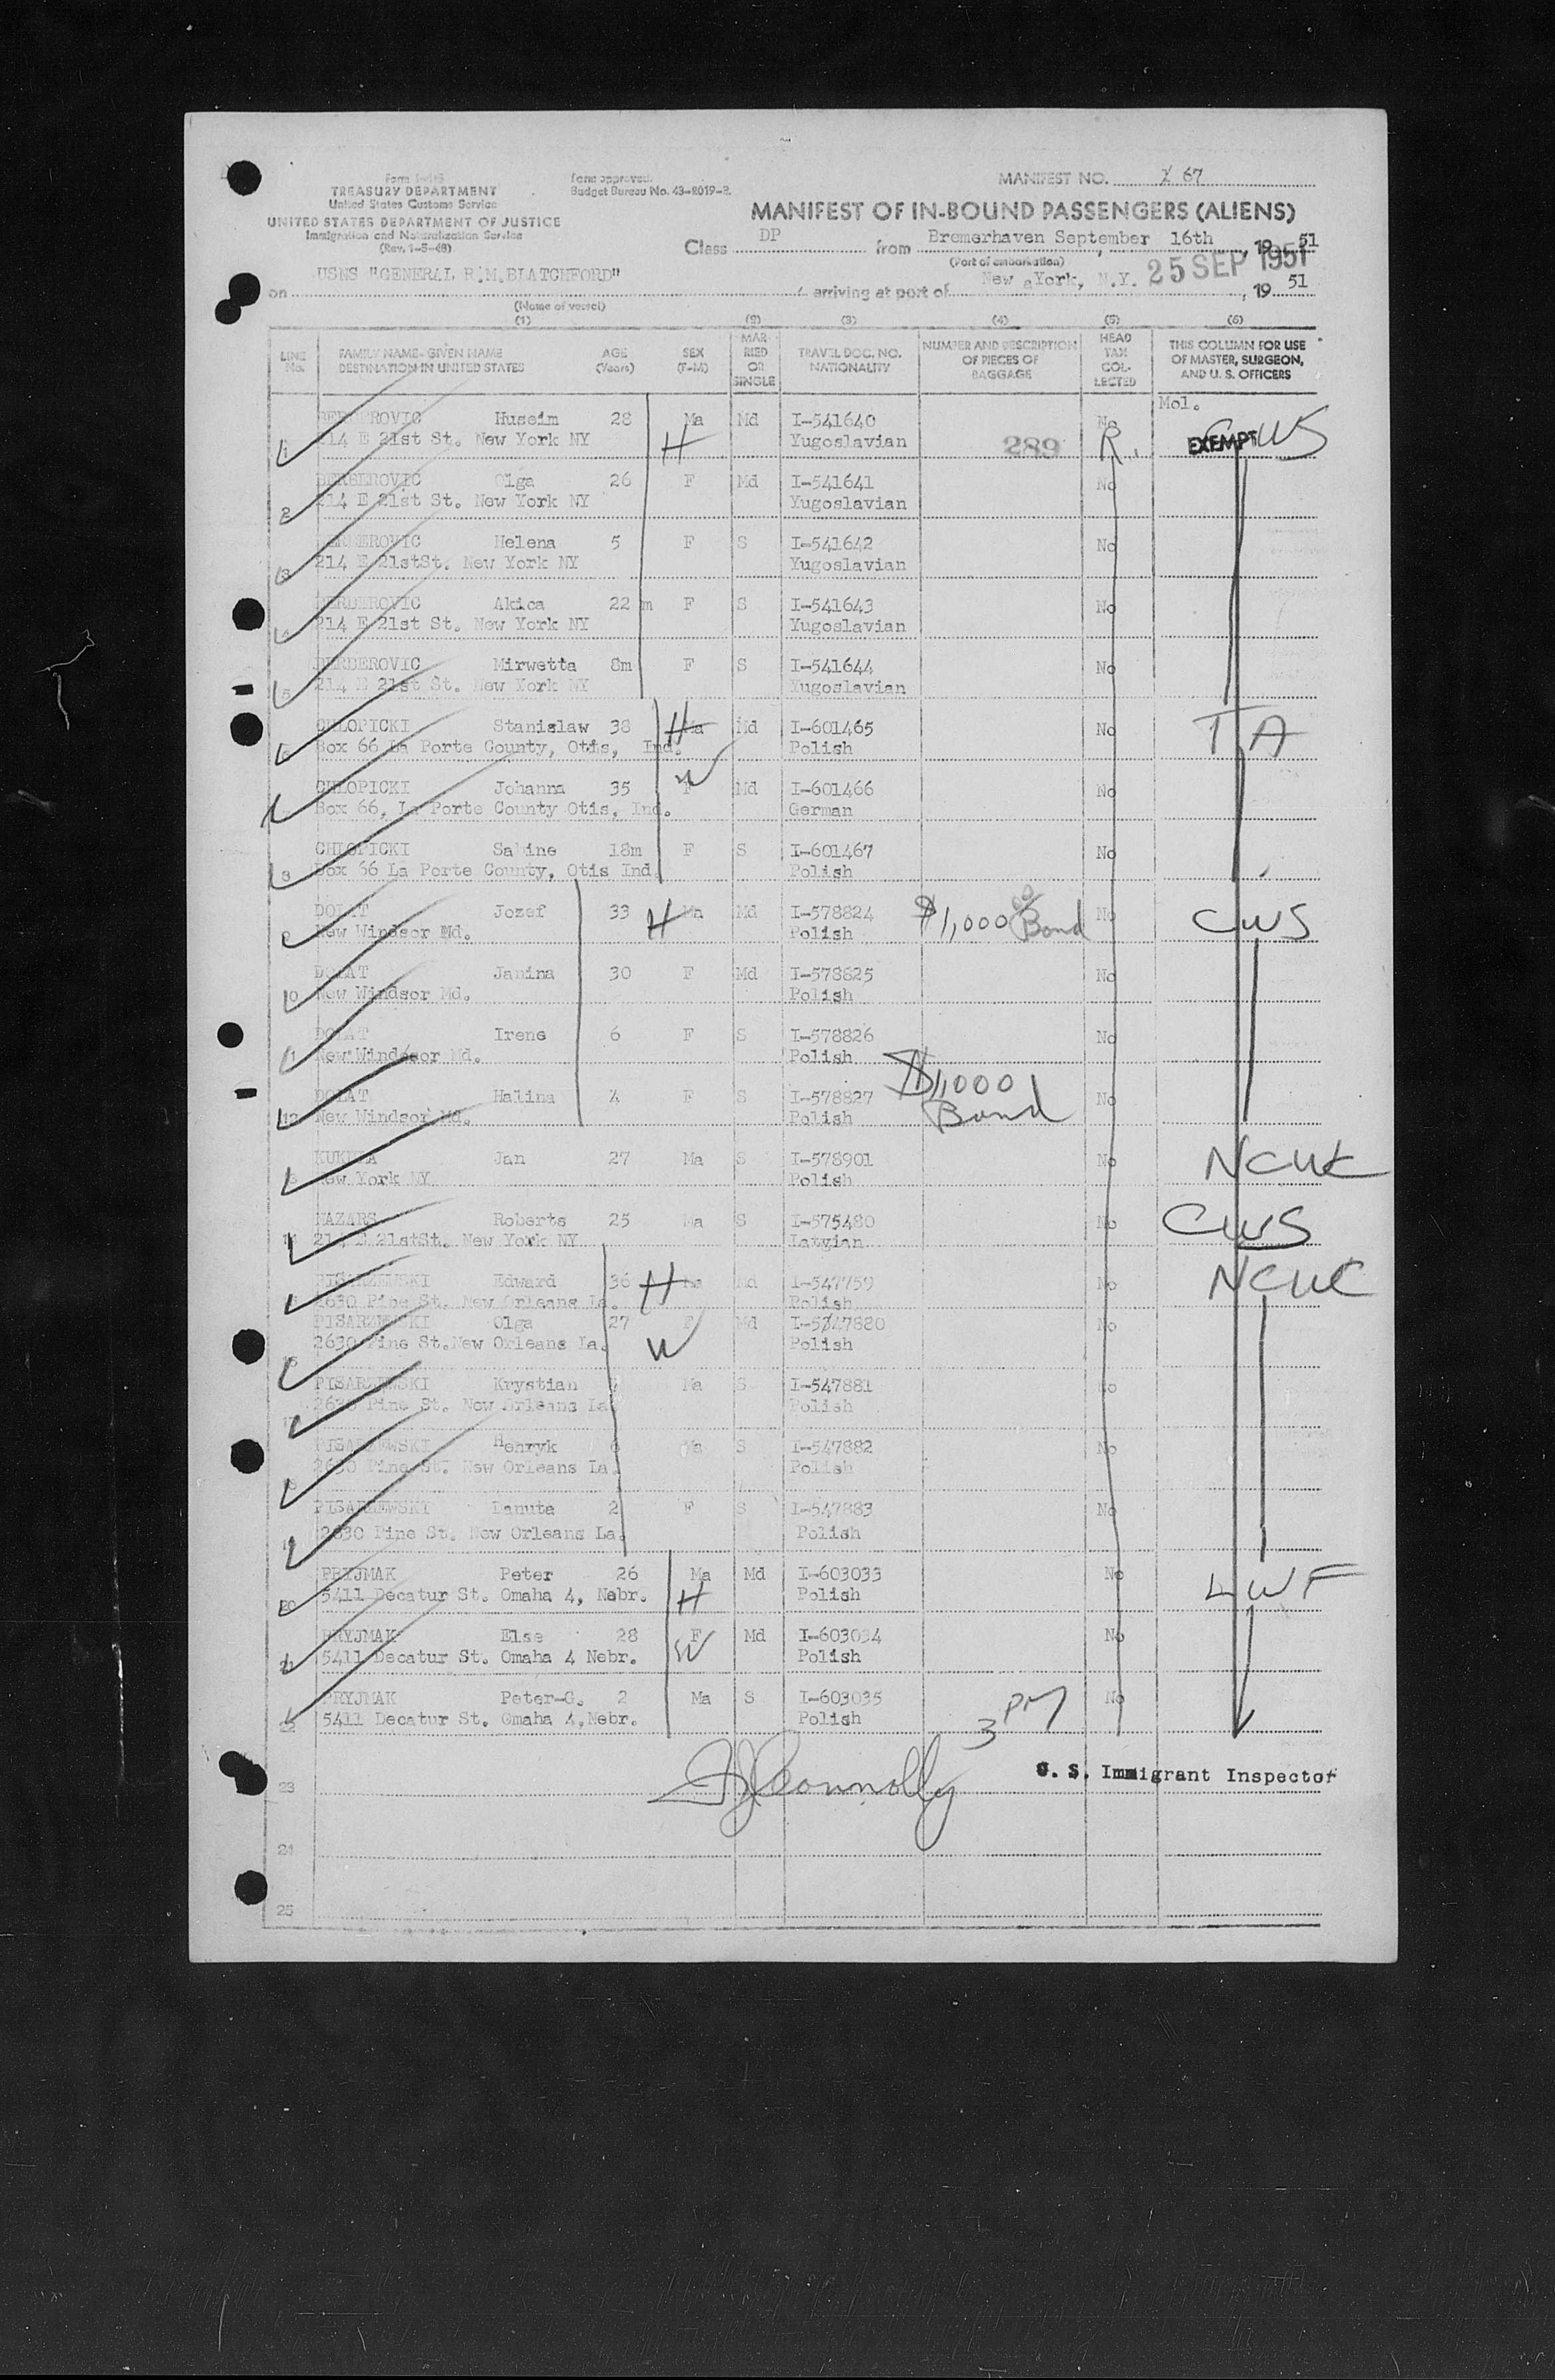 MANIFEST NO. 67
TREASURY DEPARTMENT
United States Customs Service
UNITED STATES DEPARTMENT OF JUSTICE
Immigration and Naturalization Service
(Rev. 1-5-48)
Form approved.
Budget Bureau No. 43-R019-2.
MANIFEST OF IN-BOUND PASSENGERS (ALIENS)
Class DP from Bremerhaven September 16th, 19 51
(Port of embarkation)
on USNS "GENERAL R.M.BLATCHFORD", arriving at port of New York, N.Y. 25 SEP 1951, 19 51
(Name of vessel)
(1) (2) (3) (4) (5) (6)
LINE No. FAMILY NAME-GIVEN NAME DESTINATION IN UNITED STATES AGE (Years) SEX (F-M) MARRIED OR SINGLE TRAVEL DOC. NO. NATIONALITY NUMBER AND DESCRIPTION OF PIECES OF BAGGAGE HEAD TAX COLLECTED THIS COLUMN FOR USE OF MASTER, SURGEON, AND U. S. OFFICERS
Mol.
1 BERBEROVIC Huseim 28 Ma Md I-541640 No CWS
214 E 21st St. New York NY H Yugoslavian 289 R. EXEMPT
BERBEROVIC Olga 26 F Md I-541641 No
2 214 E 21st St. New York NY Yugoslavian
BERBEROVIC Helena 5 F S I-541642 No
3 214 E 21stSt. New York NY Yugoslavian
BERBEROVIC Akica 22 m F S I-541643 No
4 214 E 21st St. New York NY Yugoslavian
BERBEROVIC Mirwetta 8m F S I-541644 No
5 214 E 21st St. New York NY Yugoslavian
CHLOPICKI Stanislaw 38 H Ma Md I-601465 No T A
6 Box 66 La Porte County, Otis, Ind. Polish
CHLOPICKI Johanna 35 W F Md I-601466 No
Box 66, La Porte County Otis, Ind. German
CHLOPICKI Sabine 18m F S I-601467 No
8 Box 66 La Porte County, Otis Ind. Polish
DOLAT Jozef 33 H Ma Md I-578824 $1,000 00 Bond No CWS
9 New Windsor Md. Polish
DOLAT Janina 30 F Md I-578825 No
10 New Windsor Md. Polish
DOLAT Irene 6 F S I-578826 No
11 New Windsor Md. Polish
DOLAT Halina 4 F S I-578827 $1,000 Bond No
12 New Windsor Md. Polish
Jan 27 Ma S I-578901 No NCWC
New York NY Polish
NAZARS Roberts 25 Ma S I-575480 No CWS
14 214 E 21stSt. New York NY Latvian
PISARZEWSKI Edward 36 H Ma Md I-547759 No NCWC
2630 Pine St. New Orleans La. Polish
PISARZEWSKI Olga 27 F Md I-547880 No
16 2630 Pine St.New Orleans La. W Polish
PISARZEWSKI Krystian Ma S I-547881 No
17 2630 Pine St. New Orleans La. Polish
PISARZEWSKI Henryk Ma S I-547882 No
18 2630 Pine St. New Orleans La. Polish
PISARZEWSKI Danuta 2 F S I-547883 No
19 2630 Pine St. New Orleans La. Polish
PRYJMAK Peter 26 Ma Md I-603033 No LWF
20 5411 Decatur St. Omaha 4, Nebr. H Polish
PRYJMAK Else 28 F Md I-603034 No
21 5411 Decatur St. Omaha 4 Nebr. W Polish
PRYJMAK Peter-G. 2 Ma S I-603035 3 PM No
22 5411 Decatur St. Omaha 4,Nebr. Polish
Connolly U. S. Immigrant Inspector
23
24
25